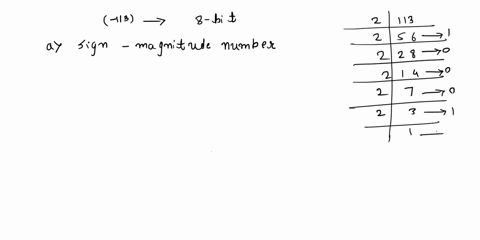 (-113) → 8-bit
a) sign - magnitude number
2 | 113
2 | 56 → 1
2 | 28 → 0
2 | 14 → 0
2 | 7 → 0
2 | 3 → 1
1